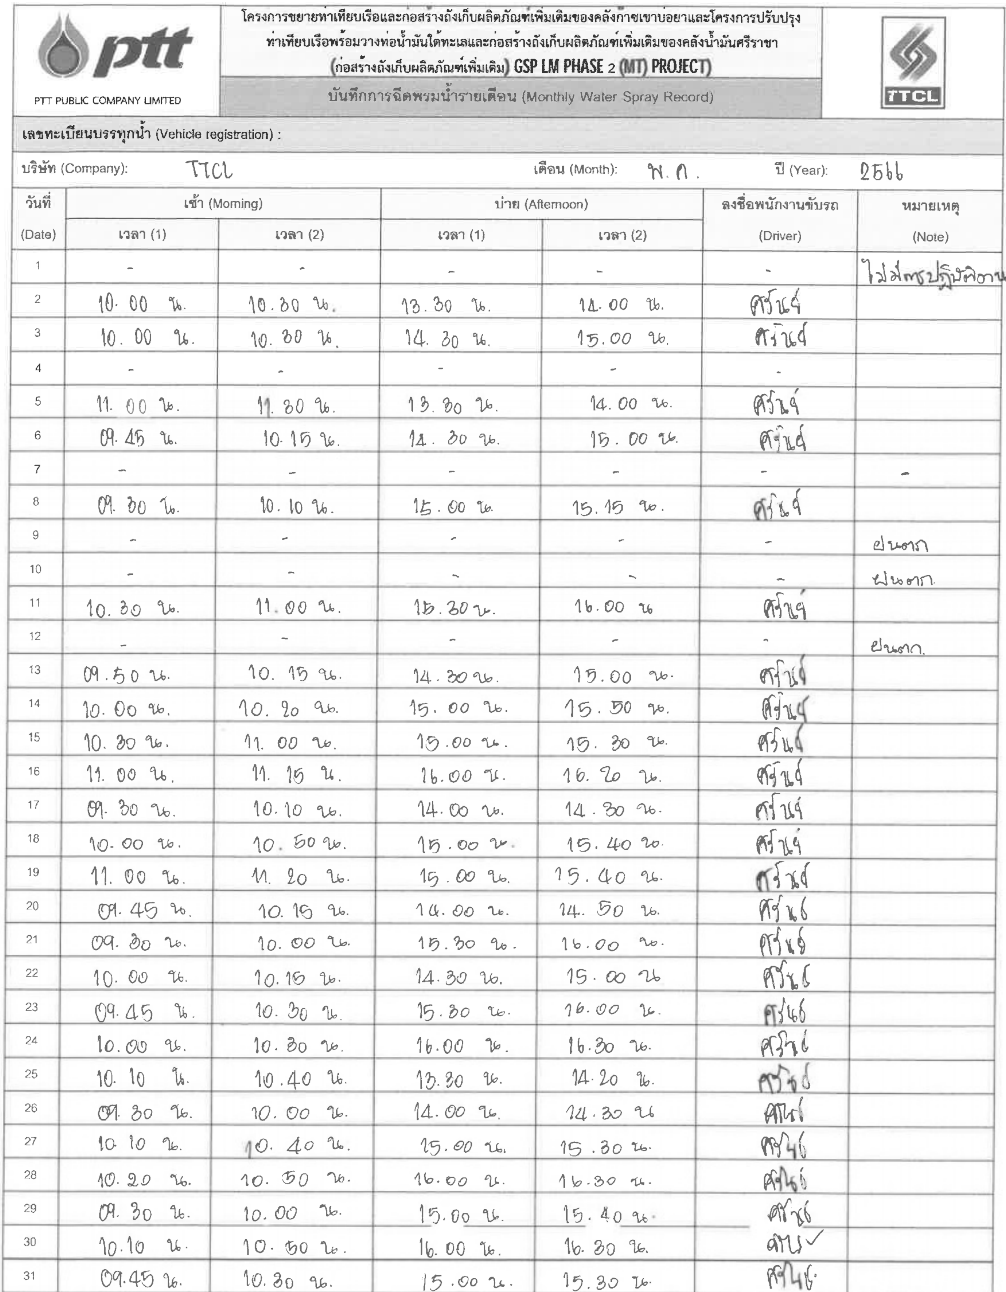 โครงการขยายท่าเทียบเรือและก่อสร้างถังเก็บผลิตภัณฑ์เพิ่มเติมของคลังก๊าซเขาบ่อยาและโครงการปรับปรุง
ท่าเทียบเรือพร้อมวางท่อน้ำมันใต้ทะเลและก่อสร้างถังเก็บผลิตภัณฑ์เพิ่มเติมของคลังน้ำมันศรีราชา
(ก่อสร้างถังเก็บผลิตภัณฑ์เพิ่มเติม) GSP LM PHASE 2 (MT) PROJECT)
บันทึกการฉีดพรมน้ำรายเดือน (Monthly Water Spray Record)
ptt
PTT PUBLIC COMPANY LIMITED
TTCL
เลขทะเบียนบรรทุกน้ำ (Vehicle registration) :
บริษัท (Company): TTCL เดือน (Month): พ.ค. ปี (Year): 2566
วันที่ เช้า (Morning) บ่าย (Afternoon) ลงชื่อพนักงานขับรถ หมายเหตุ
(Date) เวลา (1) เวลา (2) เวลา (1) เวลา (2) (Driver) (Note)
1 - - - - - ไม่มีการปฏิบัติงาน
2 10.00 น. 10.30 น. 13.30 น. 14.00 น.
3 10.00 น. 10.30 น. 14.30 น. 15.00 น.
4 - - - - -
5 11.00 น. 11.30 น. 13.30 น. 14.00 น.
6 09.45 น. 10.15 น. 14.30 น. 15.00 น.
7 - - - - - -
8 09.30 น. 10.10 น. 15.00 น. 15.15 น.
9 - - - - - ฝนตก
10 - - - - - ฝนตก
11 10.30 น. 11.00 น. 15.30 น. 16.00 น
12 - - - - - ฝนตก.
13 09.50 น. 10.15 น. 14.30 น. 15.00 น.
14 10.00 น. 10.20 น. 15.00 น. 15.50 น.
15 10.30 น. 11.00 น. 15.00 น. 15.30 น.
16 11.00 น. 11.15 น. 16.00 น. 16.20 น.
17 09.30 น. 10.10 น. 14.00 น. 14.30 น.
18 10.00 น. 10.50 น. 15.00 น. 15.40 น.
19 11.00 น. 11.20 น. 15.00 น. 15.40 น.
20 09.45 น. 10.15 น. 14.00 น. 14.50 น.
21 09.30 น. 10.00 น. 15.30 น. 16.00 น.
22 10.00 น. 10.15 น. 14.30 น. 15.00 น
23 09.45 น. 10.30 น. 15.30 น. 16.00 น.
24 10.00 น. 10.30 น. 16.00 น. 16.30 น.
25 10.10 น. 10.40 น. 13.30 น. 14.20 น.
26 09.30 น. 10.00 น. 14.00 น. 14.30 น
27 10.10 น. 10.40 น. 15.00 น. 15.30 น.
28 10.20 น. 10.50 น. 16.00 น. 16.30 น.
29 09.30 น. 10.00 น. 15.00 น. 15.40 น.
30 10.10 น. 10.50 น. 16.00 น. 16.30 น.
31 09.45 น. 10.30 น. 15.00 น. 15.30 น.